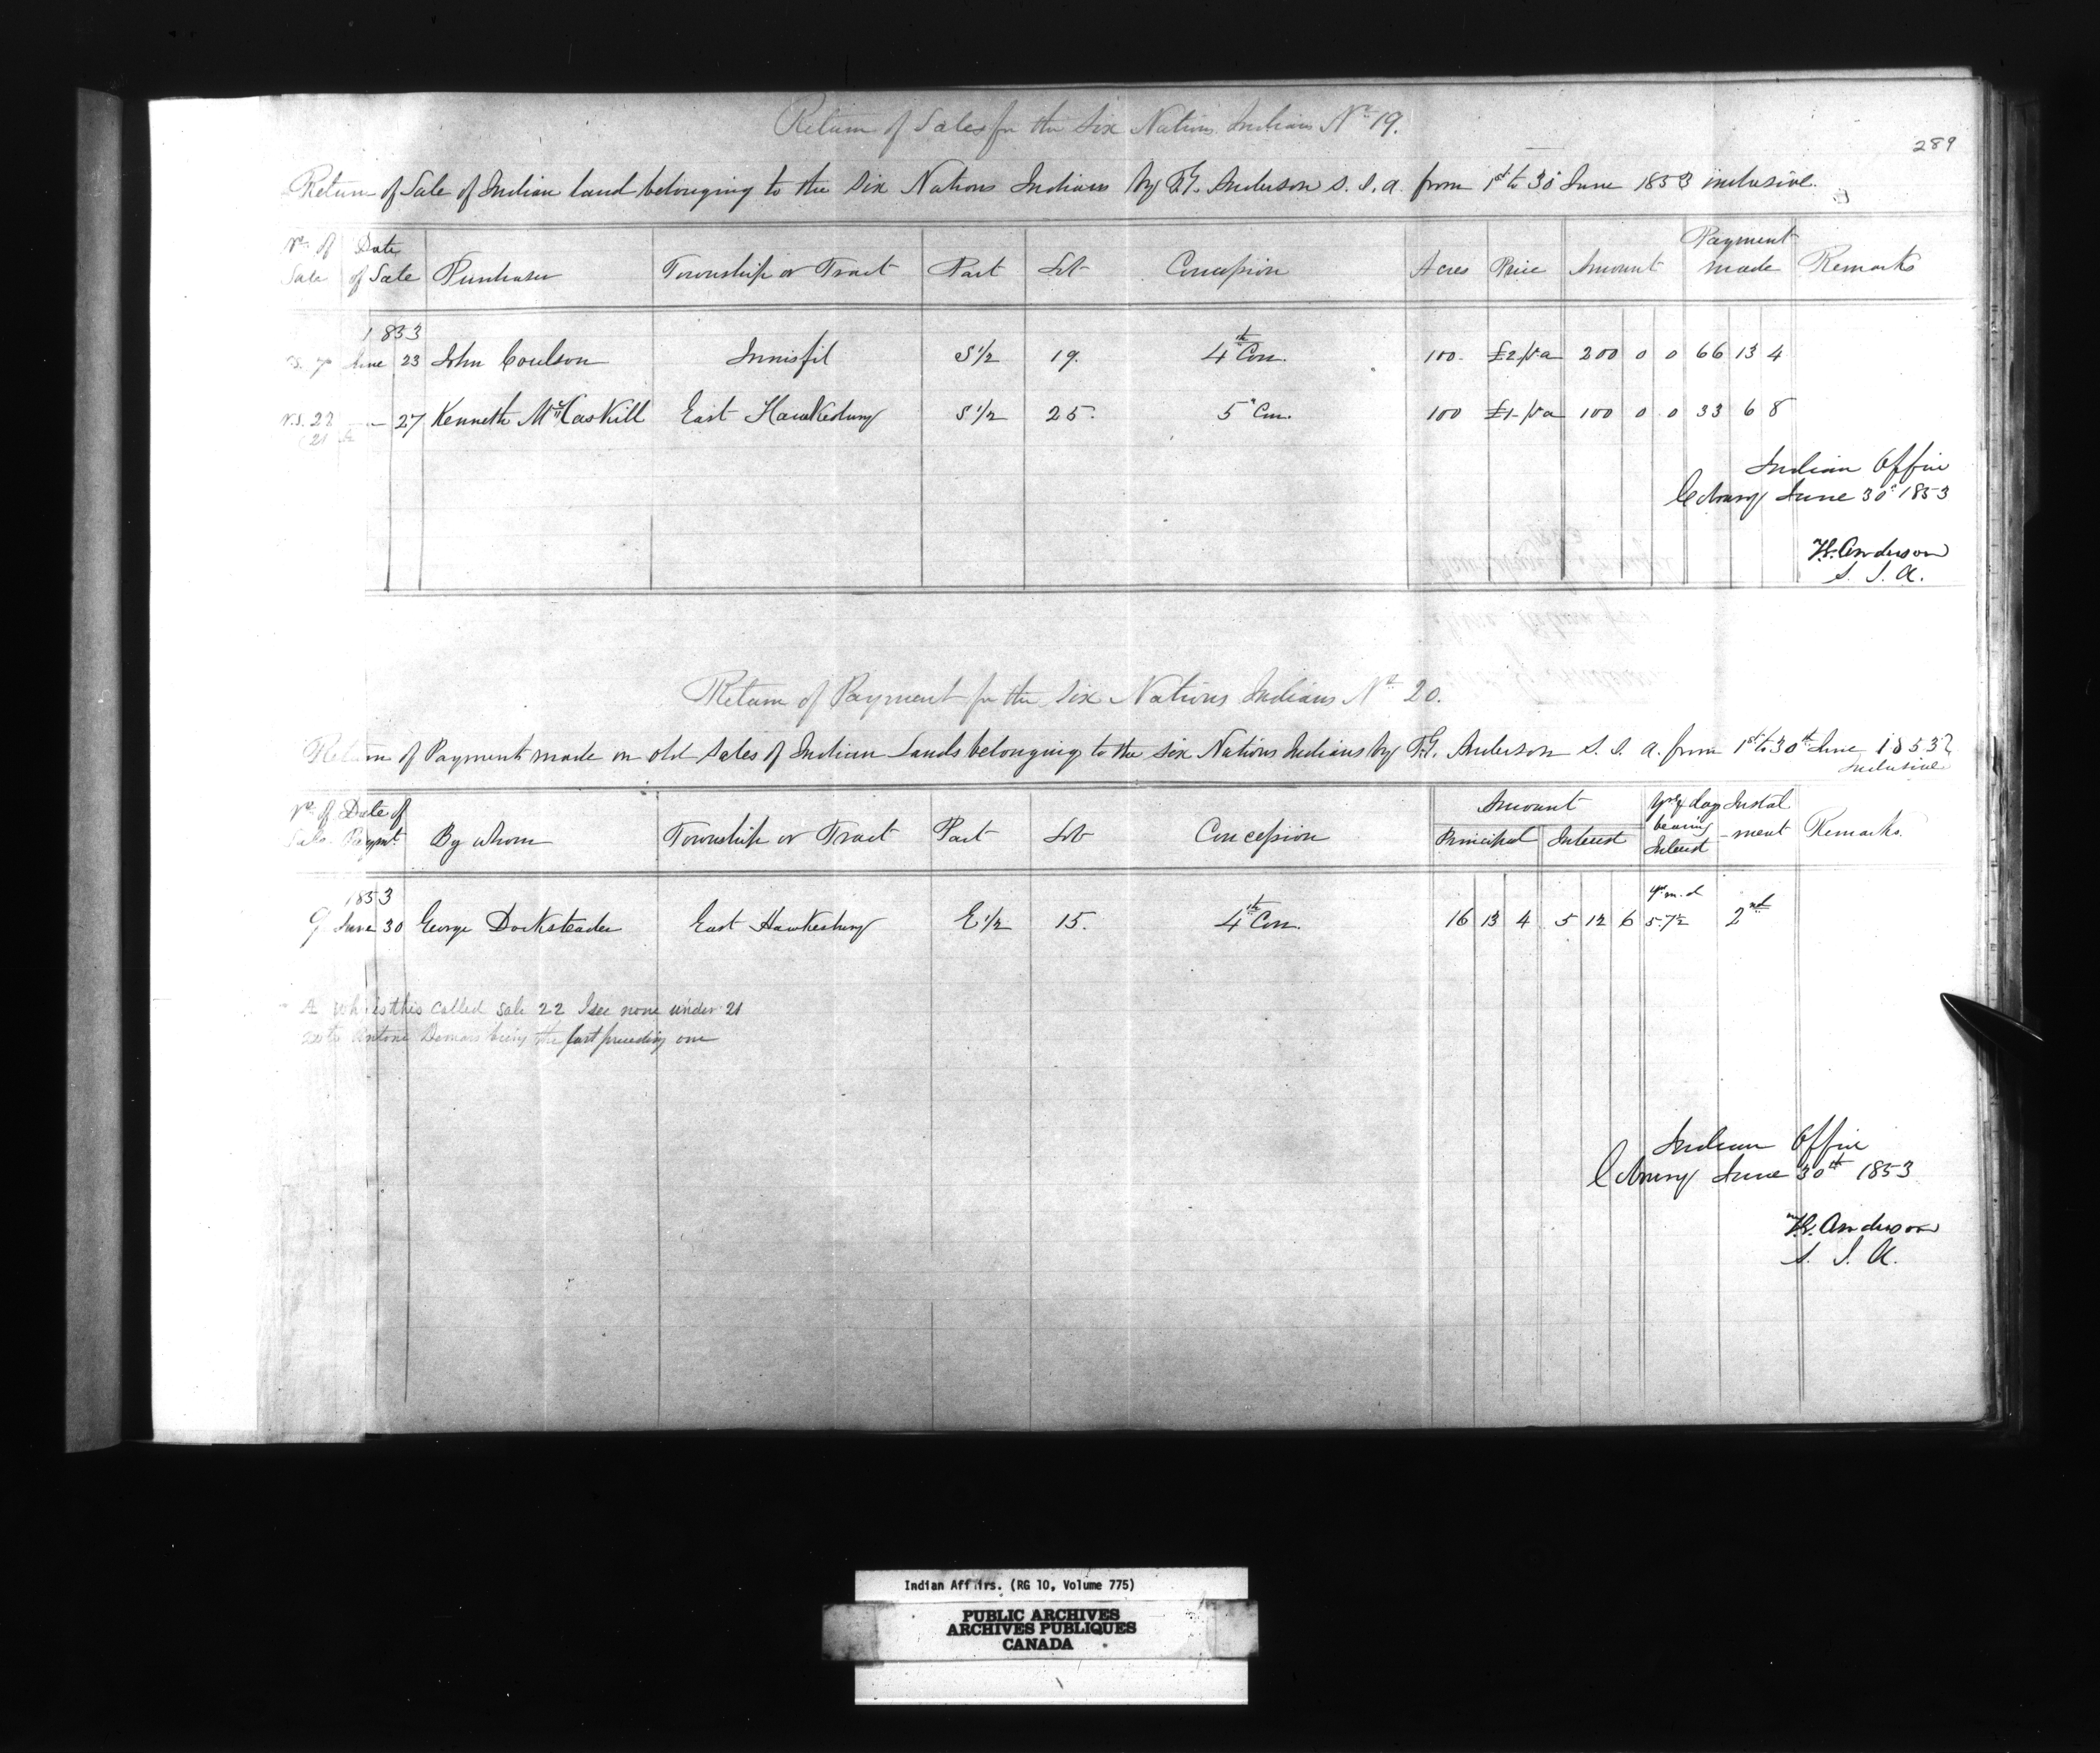 Return of Sales for the Six Nations Indians No 19.
289
Return of Sale of Indian land belonging to the Six Nations Indians by T.G. Anderson S. I. A. from 1st to 30 June 1853 inclusive.
No of Sale | Date of Sale | Purchaser | Township or Tract | Part | Lot | Concession | Acres | Price | Amount | Payment made | Remarks
1853
June 23 John Coulson Innisfil S 1/2 19. 4th Con. 100. £2 200 0 0 66 13 4
N.S. 22 " 27 Kenneth McCaskill East Hawkesbury S 1/2 25. 5 Con. 100 £1 100 0 0 33 6 8
(21 A
Indian Office
Cobourg June 30 1853
T.G. Anderson
S. I. A.
Return of Payment for the Six Nations Indians No 20.
Return of Payment made on old Sales of Indian Lands belonging to the Six Nations Indians by T.G. Anderson S. I. A. from 1st to 30th June 1853
Inclusive
No of Sale | Date of Paymt | By whom | Township or Tract | Part | Lot | Concession | Amount | Principal | Interest | Yrs & days bearing Interest | Instalment | Remarks
1853 yr. m. d
9 June 30 George Docksteader East Hawkesbury E 1/2 15. 4th Con. 16 13 4 5 12 6 2nd
A Why is this called sale 22 I see none under 21
Antoine Demars being the last preceding one
Indian Office
Cobourg June 30th 1853
T.G. Anderson
S. I. A.
Indian Affairs. (RG 10, Volume 775)
PUBLIC ARCHIVES
ARCHIVES PUBLIQUES
CANADA